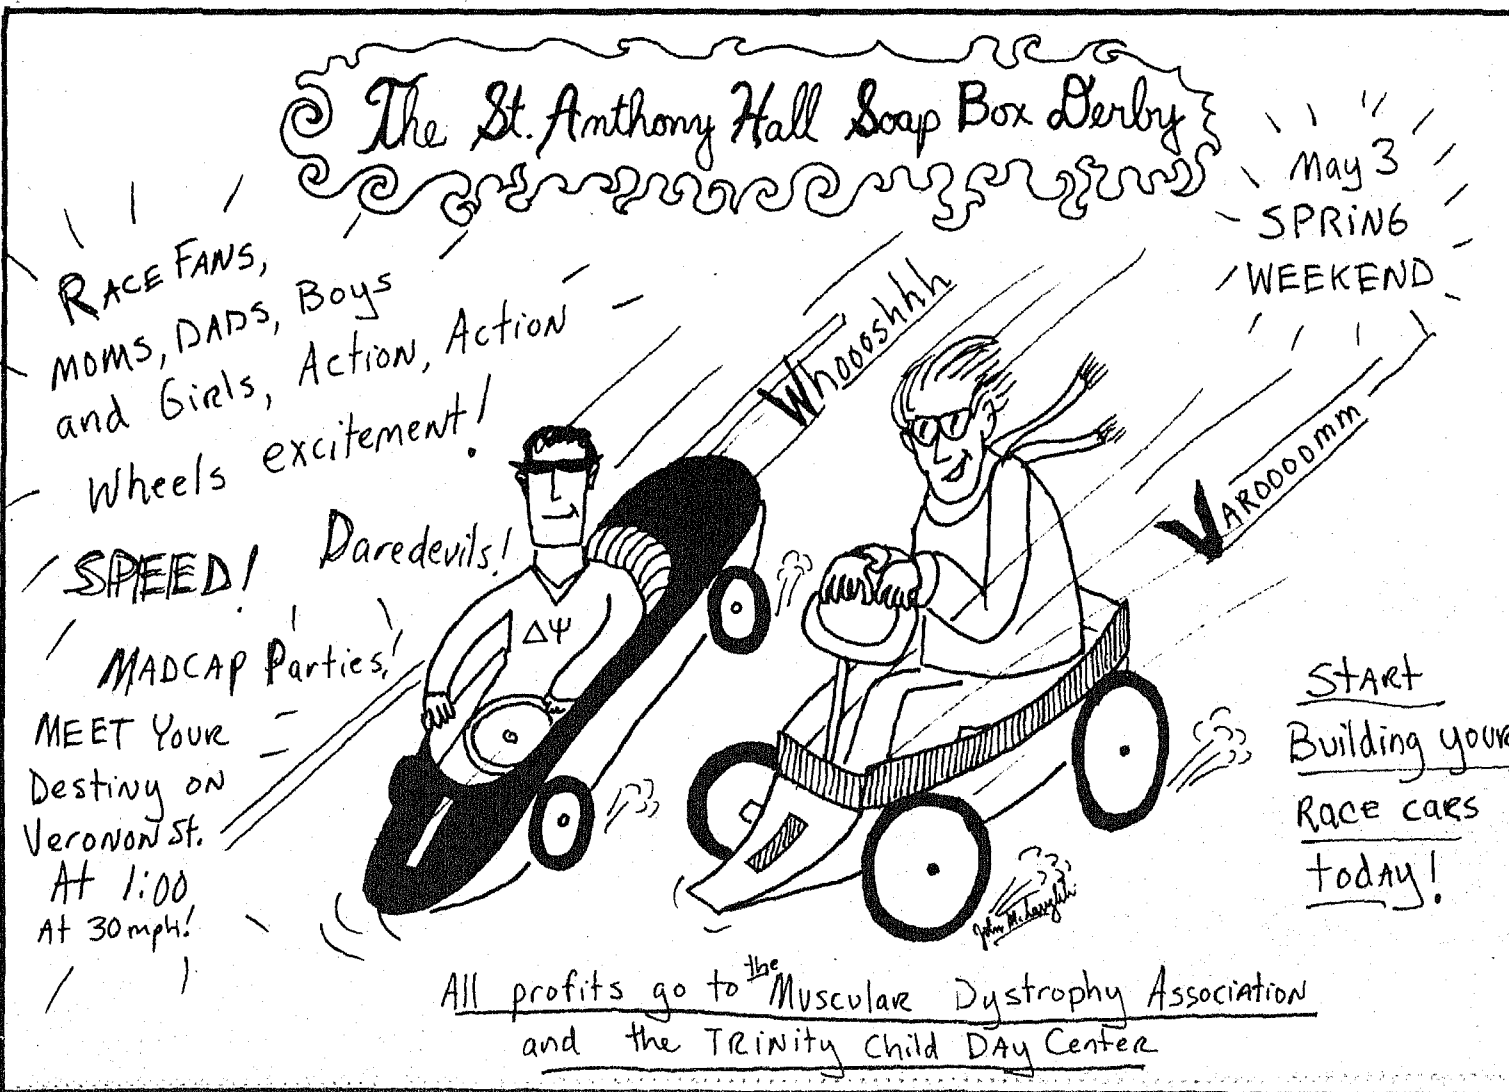 The St. Anthony Hall Soap Box Derby
May 3
SPRING
WEEKEND
RACE FANS,
MOMS, DADS, Boys
and Girls, Action, Action
Wheels excitement!
SPEED! Daredevils!
MADCAP Parties!
MEET Your
Destiny on
Veronon St.
At 1:00
At 30mph!
Whooooshhh
VAROOOOmm
ΔΨ
START
Building your
Race cars
today!
John McLaughlin
All profits go to the Muscular Dystrophy Association
and the TRINITY Child DAY Center